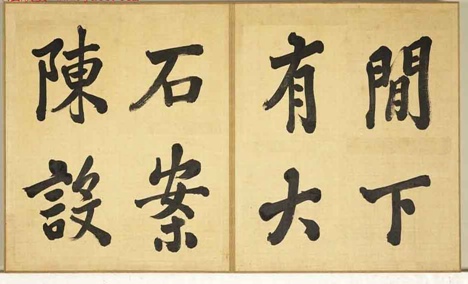 閒下
有大
石案
陳設